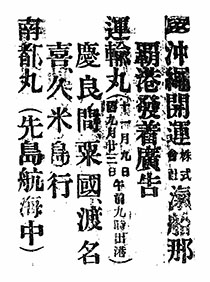 沖繩開運株式會社滊船那
覇港發着廣告
運輸丸(十一月九日九月廿三日午前九時出港)
慶良間粟國渡名
喜久米島行
南都丸(先島航海中)